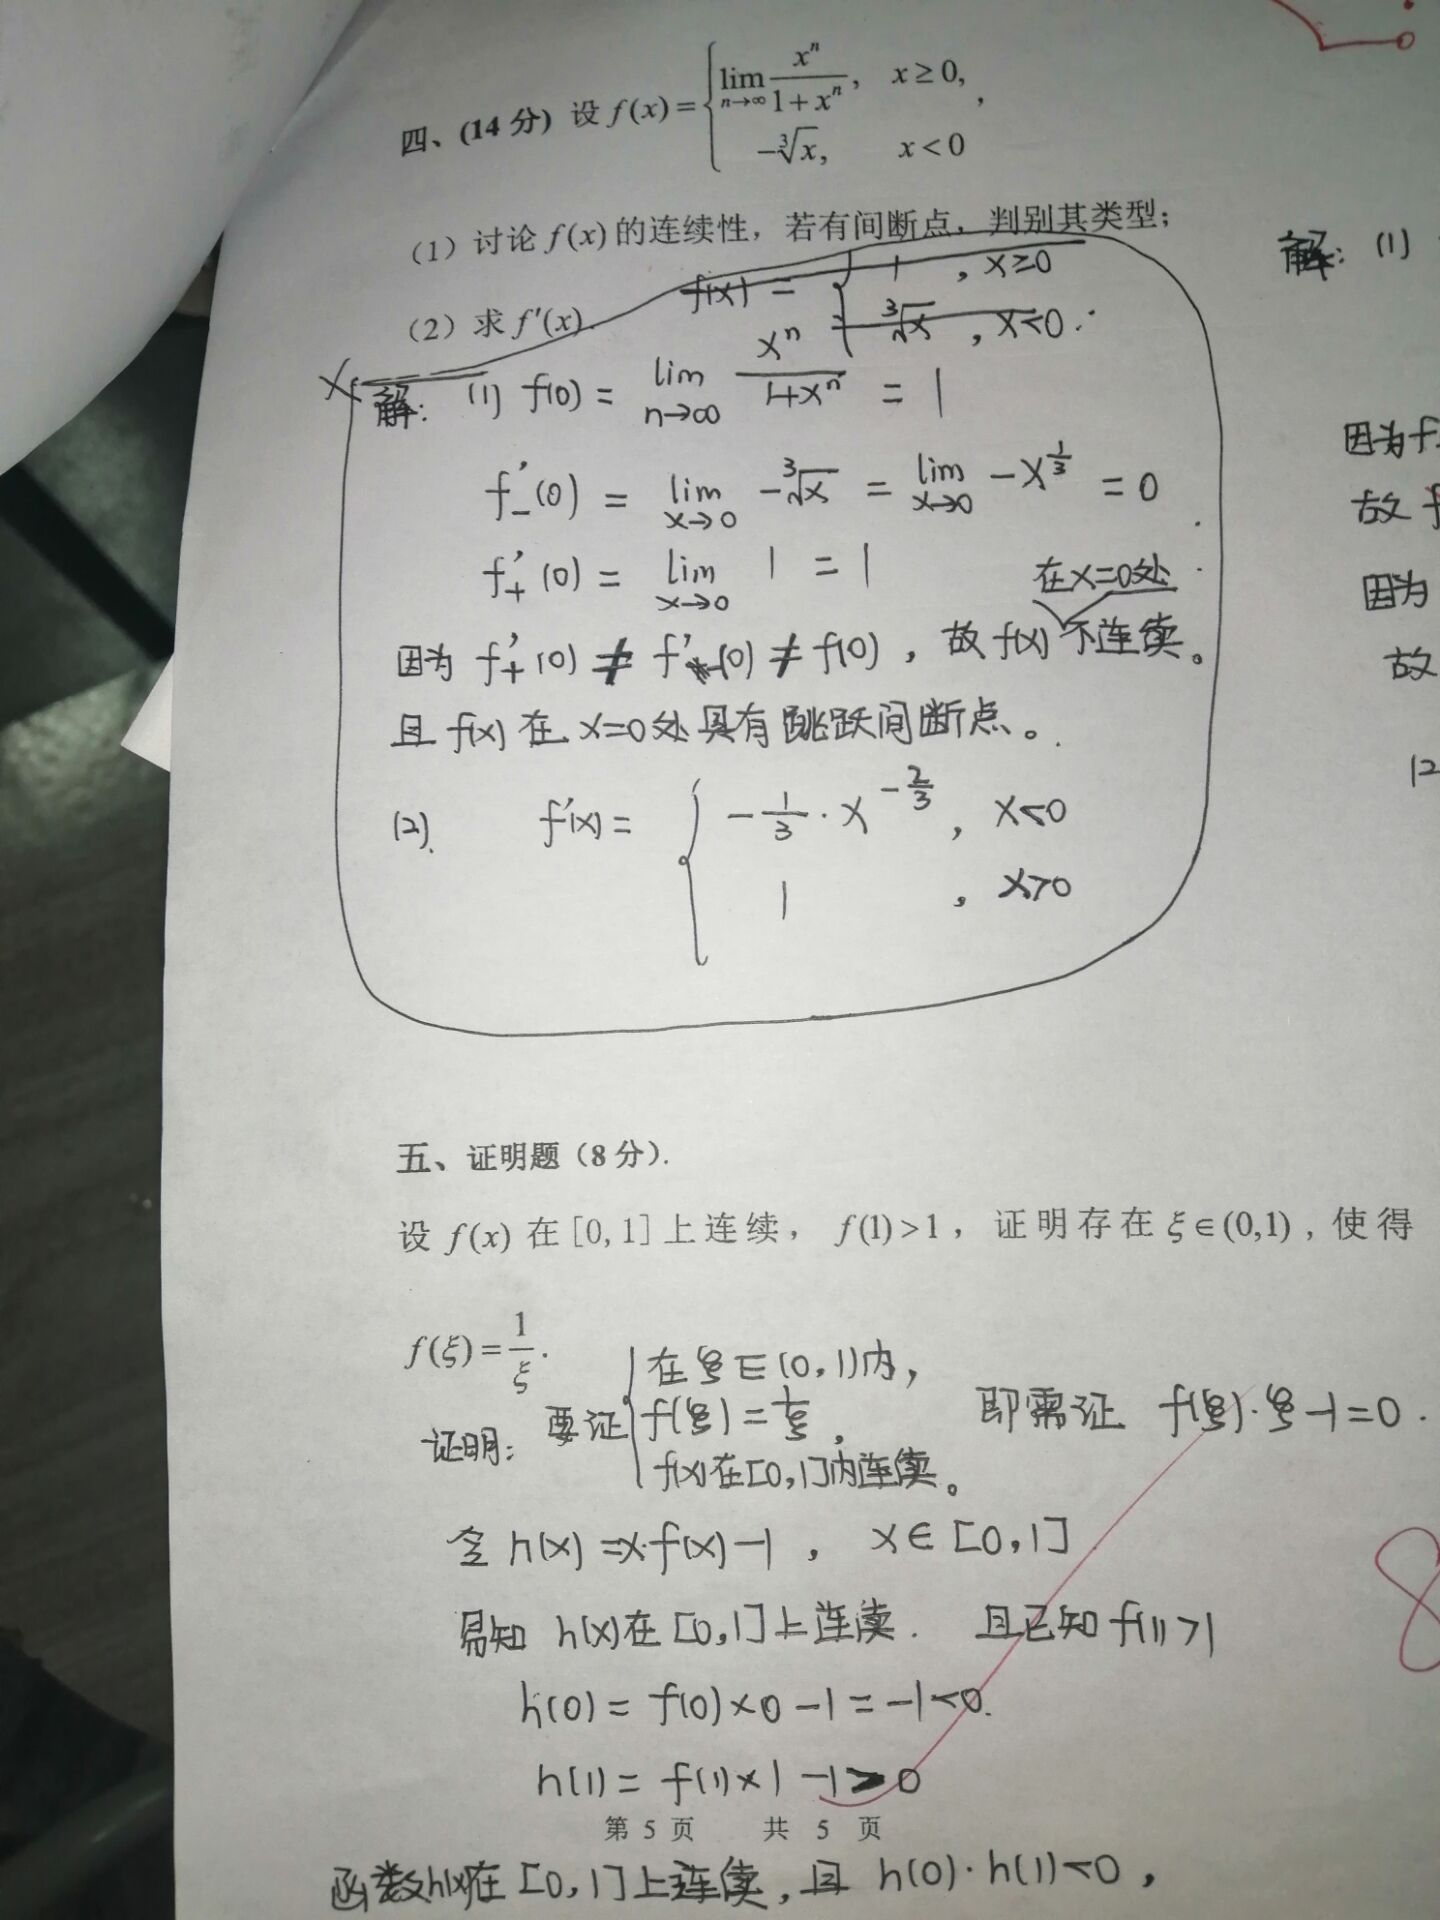 四、(14分) 设 f(x) = { lim n→∞ xⁿ/(1+xⁿ), x ≥ 0, -∛x, x < 0 ,
(1) 讨论 f(x) 的连续性，若有间断点，判别其类型；
f(x) = { 1 , x≥0
(2) 求 f′(x).
∛x , x<0.
解: (1)
解: (1) f(0) = lim n→∞ xⁿ/(1+xⁿ) = 1
f′₋(0) = lim x→0 -∛x = lim x→0 -x^(1/3) = 0
f′₊(0) = lim x→0 1 = 1
在x=0处
因为 f′₊(0) ≠ f′₋(0) ≠ f(0), 故 f(x) 不连续。
且 f(x) 在 x=0处具有跳跃间断点。
(2). f′(x) = { -1/3 · x^(-2/3) , x<0
1 , x>0
因为 f
故 f
因为
故
(2
五、证明题（8分）.
设 f(x) 在 [0,1] 上连续， f(1)>1 ，证明存在 ξ∈(0,1) , 使得
f(ξ) = 1/ξ .
证明: 要证 { 在 ξ∈(0,1)内,
f(ξ) = 1/ξ , 即需证 f(ξ)·ξ-1=0.
f(x)在[0,1]内连续。
令 h(x) =x·f(x)-1 , x∈[0,1]
易知 h(x)在[0,1]上连续. 且已知 f(1)>1
h(0) = f(0)×0 -1 = -1<0.
h(1) = f(1)×1 -1>0
8
第 5 页 共 5 页
函数h(x)在[0,1]上连续, 且 h(0)·h(1)<0 ,